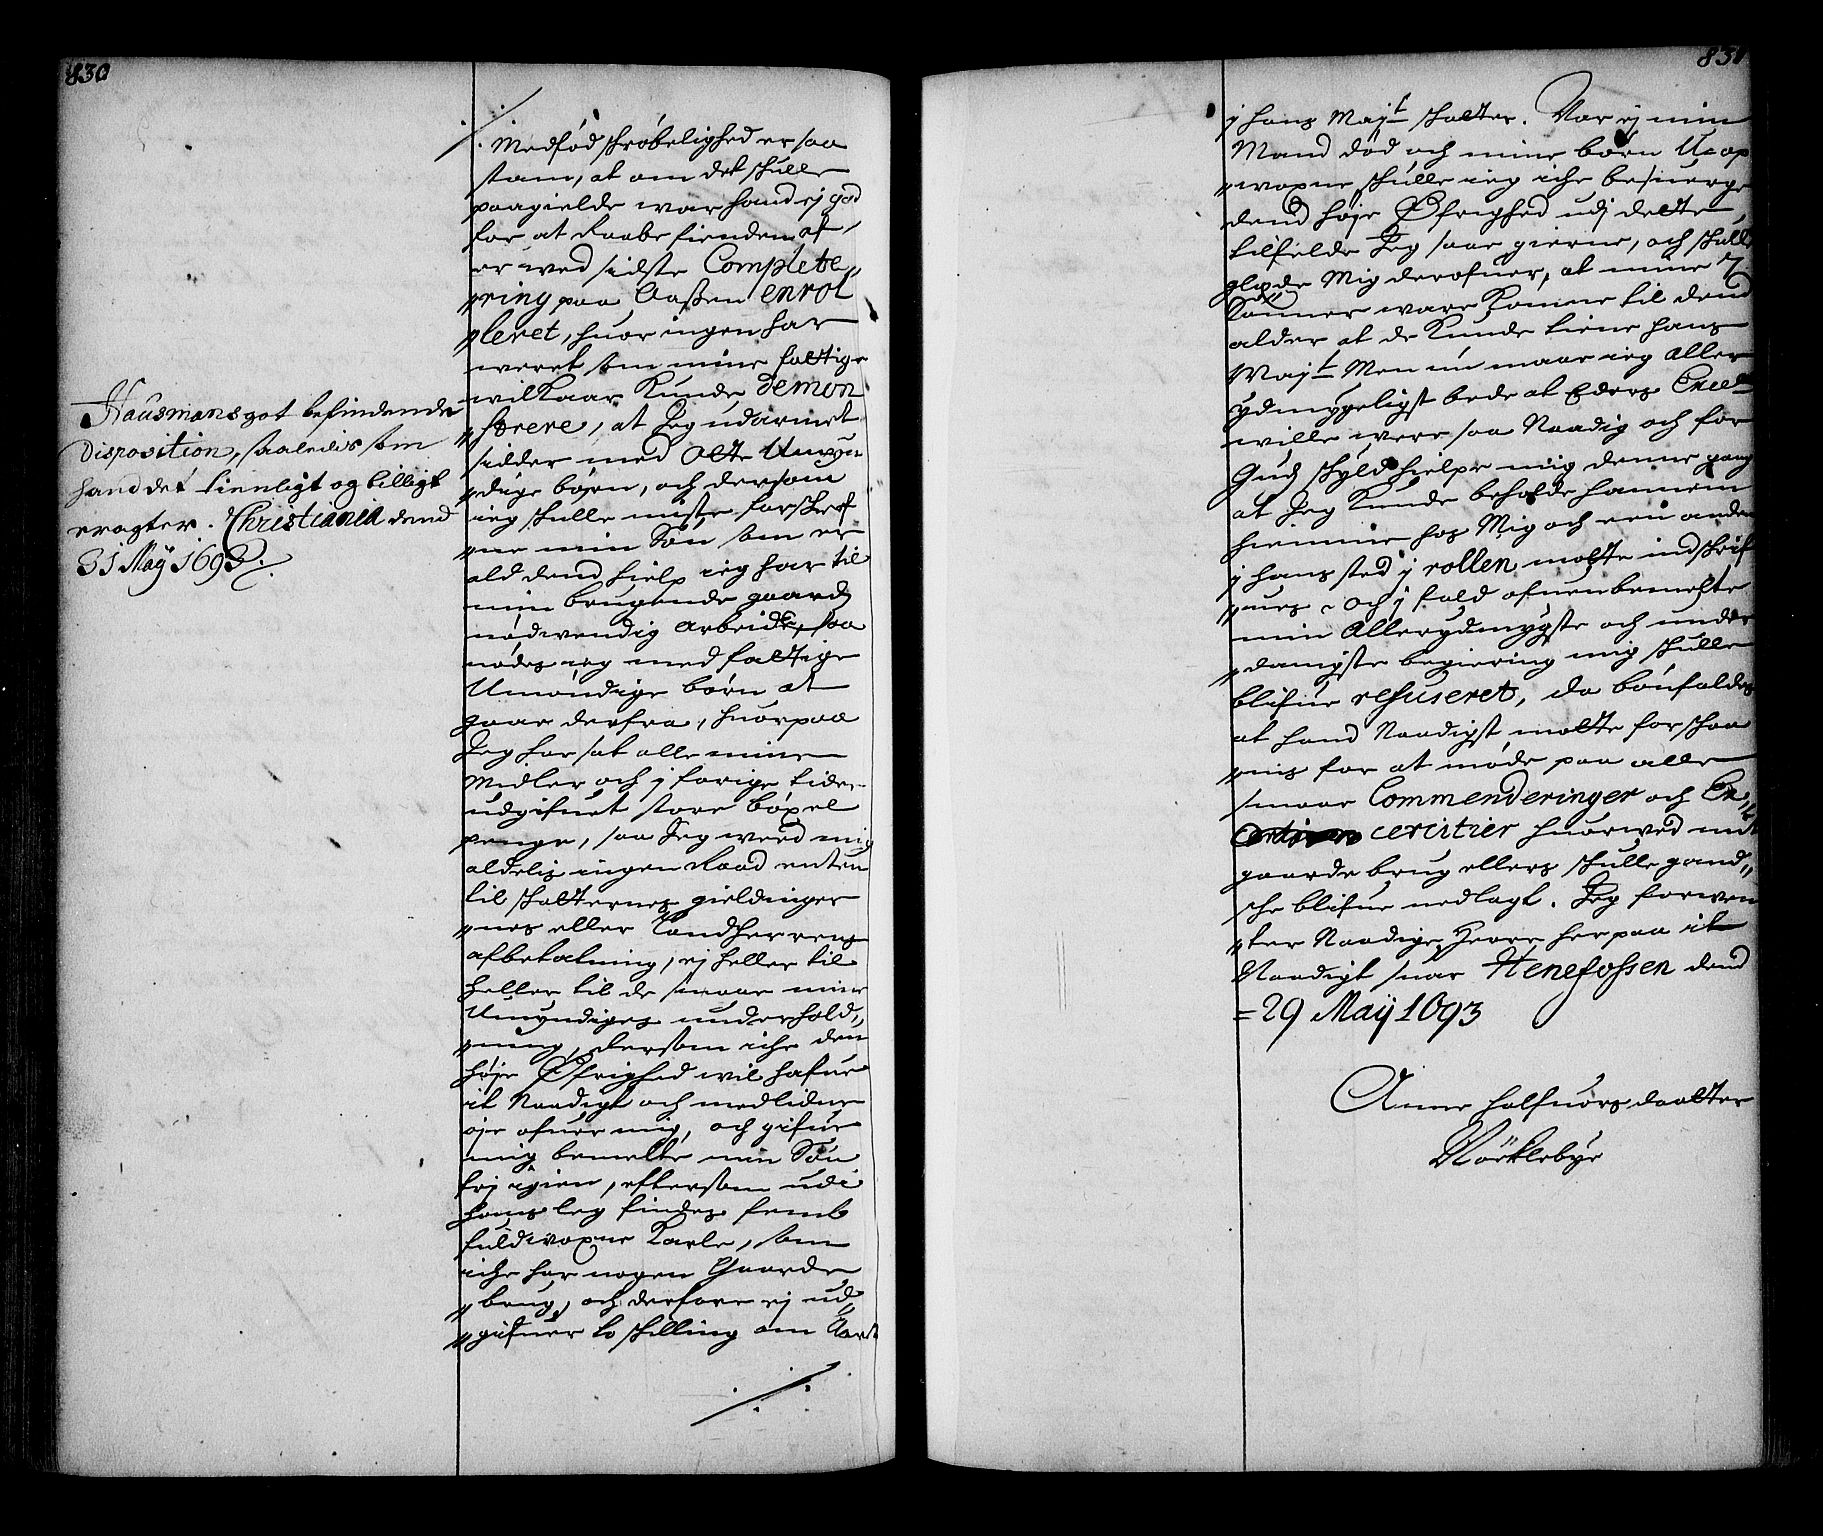 830
Hausmans got befindende
Disposition, saaledis som
hand det tienligt og billigt
eragter. Christiania dend
31 May 1693
Medfød skrøbelighed er saa
stam, at om det skulle
paagielde war hand ej god
for at Raabe fienden af,
er wed sidste Complete„
„ring paa Aassen enrol
„leret, huor ingen har
weret som mine fattige
wilkaar Kunde demon
„strere, at Jeg udarmet
sidder med Otte Umyn
„dige børn, och dersom
ieg skulle miste forskref
„ne min Søn, som er
ald dend hielp ieg har til
min brugende gaards
nødwendig arbeide, saa
nødes ieg med fattige
Umøndige børn at
gaae derfra, huorpaa
Jeg har sat alle mine
Midler och j forige tider
udgifuet store bøxel
penge, saa Jeg weed mig
aldelis ingen Raad enten
til skatternes gieldinger
„nes eller Landherrens
afbetalning, ej heller til
heller til de smaa mine
Umyndiges underhold„
„ning, dersom iche den
høje Øfrighed wil hafue
it Naadigt och medlidne
øje ofuer mig, och gifue
mig bemelte min Søn
frj igien, eftersom udi
hans leg findes femb
fuldwoxne Karle, som
iche har nogen Gaarde
„brug, och derfore ej ud„
„gifuer to skilling om Aaret
831
j hans Maj^t skatter. War ej min
Mand død och mine børn Uop
„woxne skulle ieg iche besuerge
dend høje Øfrighed udj dette
tilfelde Jeg saae gierne, och skulle
glæde Mig derofuer, at mine 7
Sønner ware Komne til dend
alder at de Kunde tiene hans
Maj^t Men nu maae ieg aller
ydmygeligst bede at Eders Excell
wille were saa Naadig och for
Guds skyld hielpe mig denne gang
at Jeg Kunde beholde hannem
hiemme hos Mig och een anden
j hans sted j rollen motte indskrif
„ues - och j fald ofuenbemelte
min Allerydmygste och under
„danigste begiering mig skulle
blifue refuseret, da bønfaldes
at hand Naadigst motte forskaa
„nis for at møde paa alle
smaae Commenderinger och Ex„
cercitier huorwed mit
gaarde brug ellers skulle gand„
sche blifue nedlagt. Jeg forwen
„ter Naadige Herre herpaa it
Naadigt suar Henefossen dend
= 29 Maÿ 1693
Anne halfuors daatter
Möcklebye